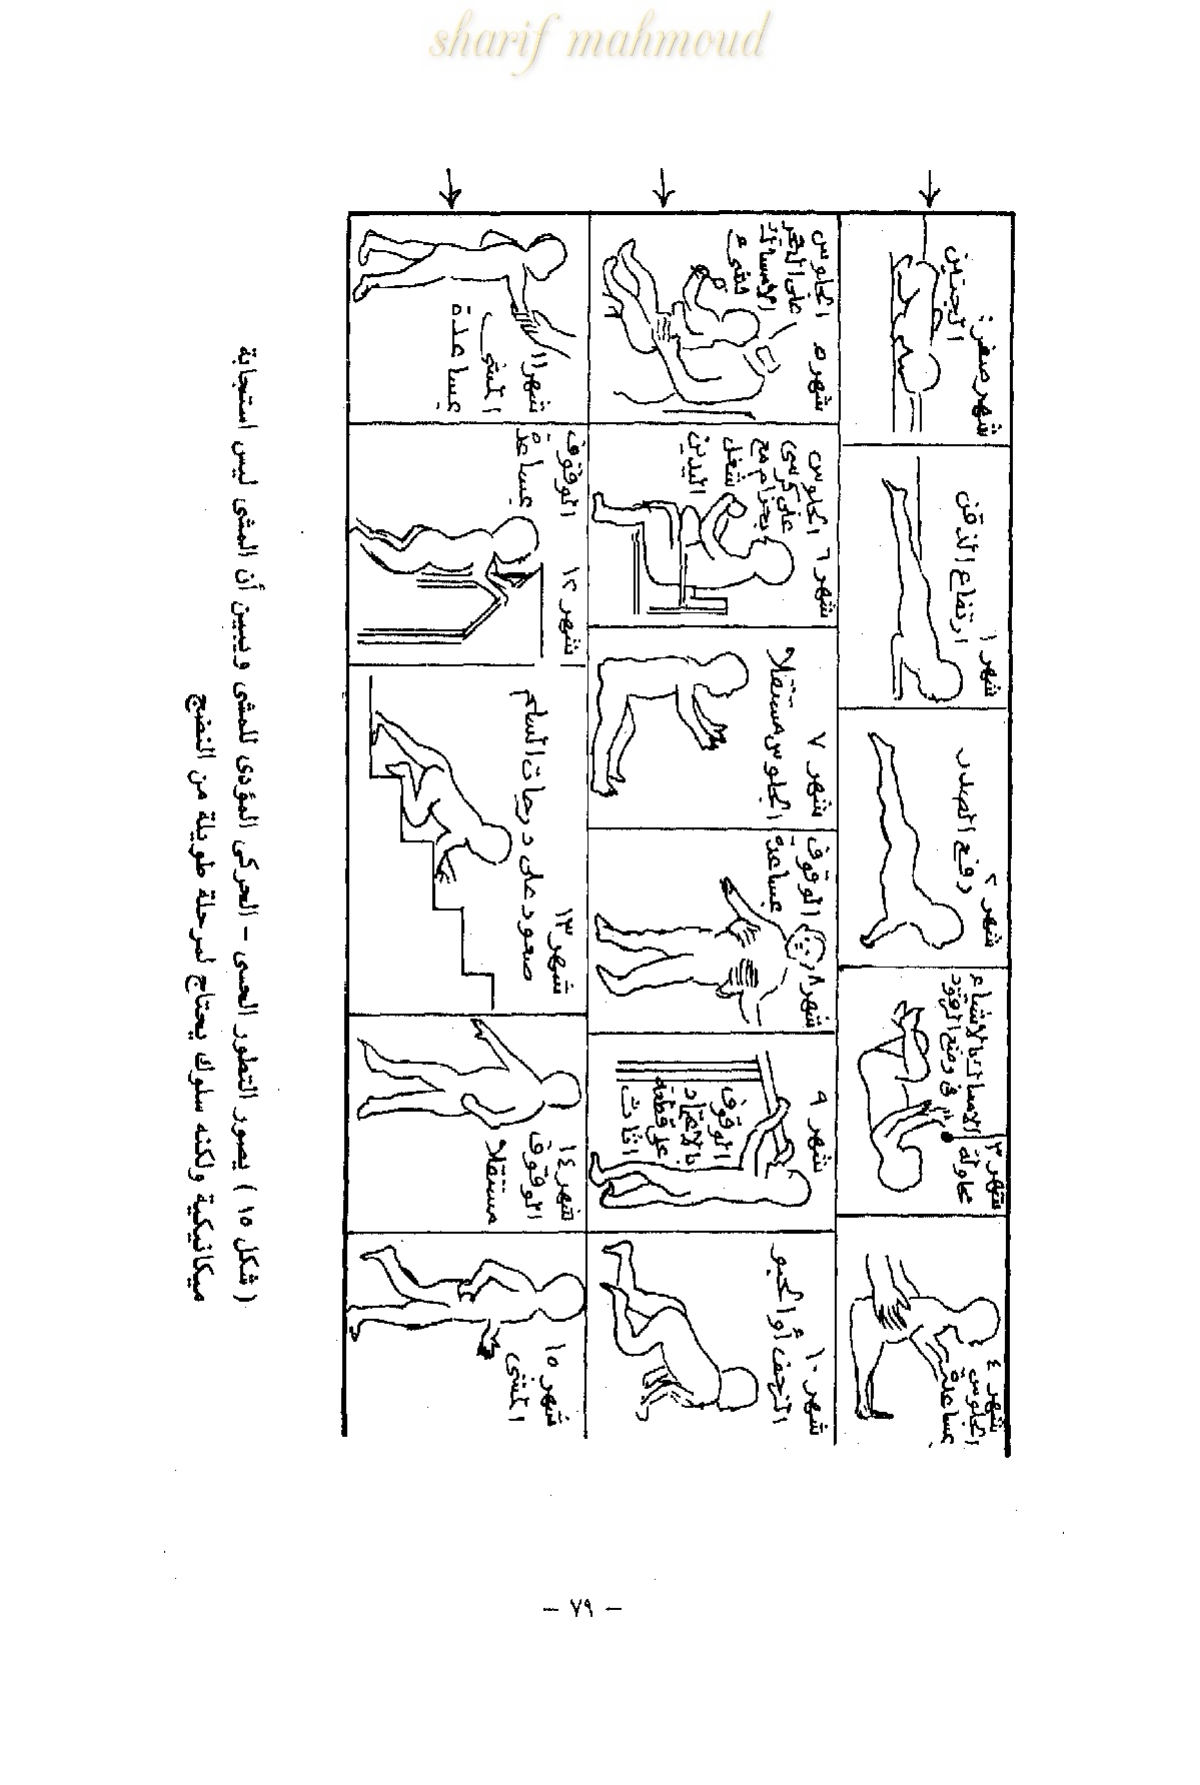 sharif mahmoud
شهر صفر:
الجنين
شهر ١
ارتفاع الذقن
شهر ٢
رفع الصدر
شهر ٣
محاولة
الامساك بالاشياء
فى وضع الرقود
شهر ٤
الجلوس
بمساعدة
شهر ٥
الجلوس
على الحجر
الامساك
بشىء
شهر ٦
الجلوس
على كرسى
بحزام مع
شغل
اليدين
شهر ٧
الجلوس مستقلا
شهر ٨
الوقوف
بمساعدة
شهر ٩
الوقوف
بالاعتماد
على قطعة
اثاث
شهر ١٠
الزحف أو الحبو
شهر ١١
المشى
بمساعدة
شهر ١٢
الوقوف
بمساعدة
شهر ١٣
صعود على درجات السلم
شهر ١٤
الوقوف
مستقلا
شهر ١٥
المشى
( شكل ١٥ ) يصور التطور الحسى - الحركى المؤدى للمشى ويبين أن المشى ليس استجابة
ميكانيكية ولكنه سلوك يحتاج لمرحلة طويلة من النضج
– ٧٩ –